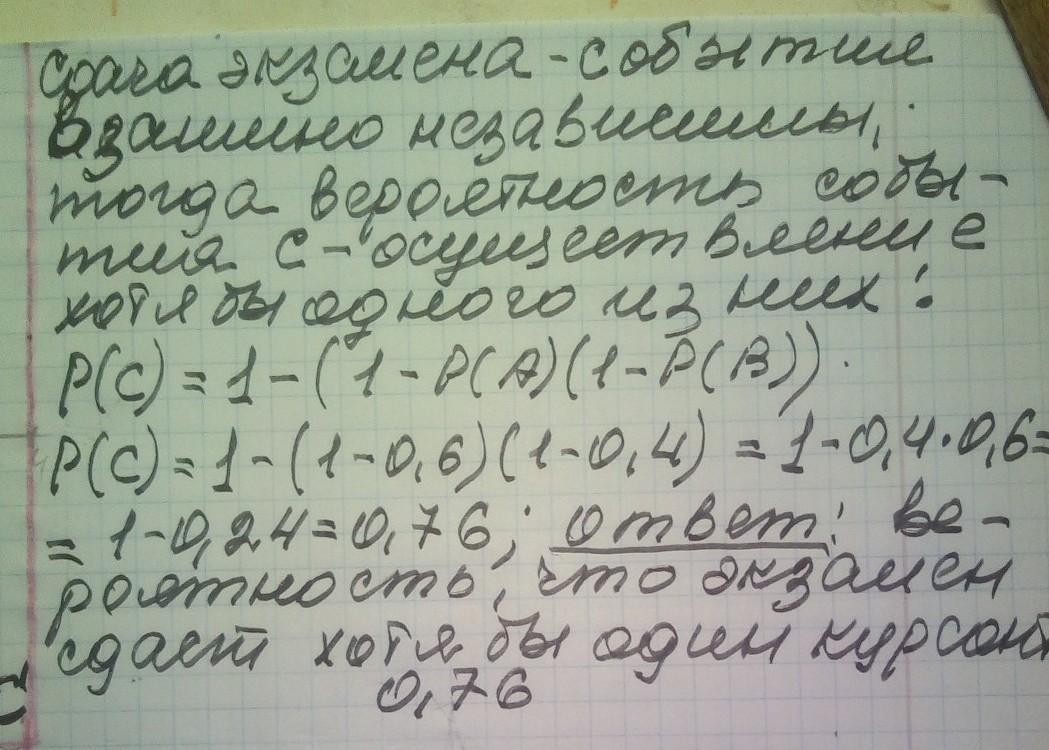 сдача экзамена - событие
взаимно независимы,
тогда вероятность собы-
тия С - осуществление
хотя бы одного из них:
P(C) = 1 - (1 - P(A)(1 - P(B)).
P(C) = 1 - (1 - 0,6)(1 - 0,4) = 1 - 0,4 · 0,6 =
= 1 - 0,24 = 0,76; ответ: ве-
роятность, что экзамен
сдаст хотя бы один курсант
0,76